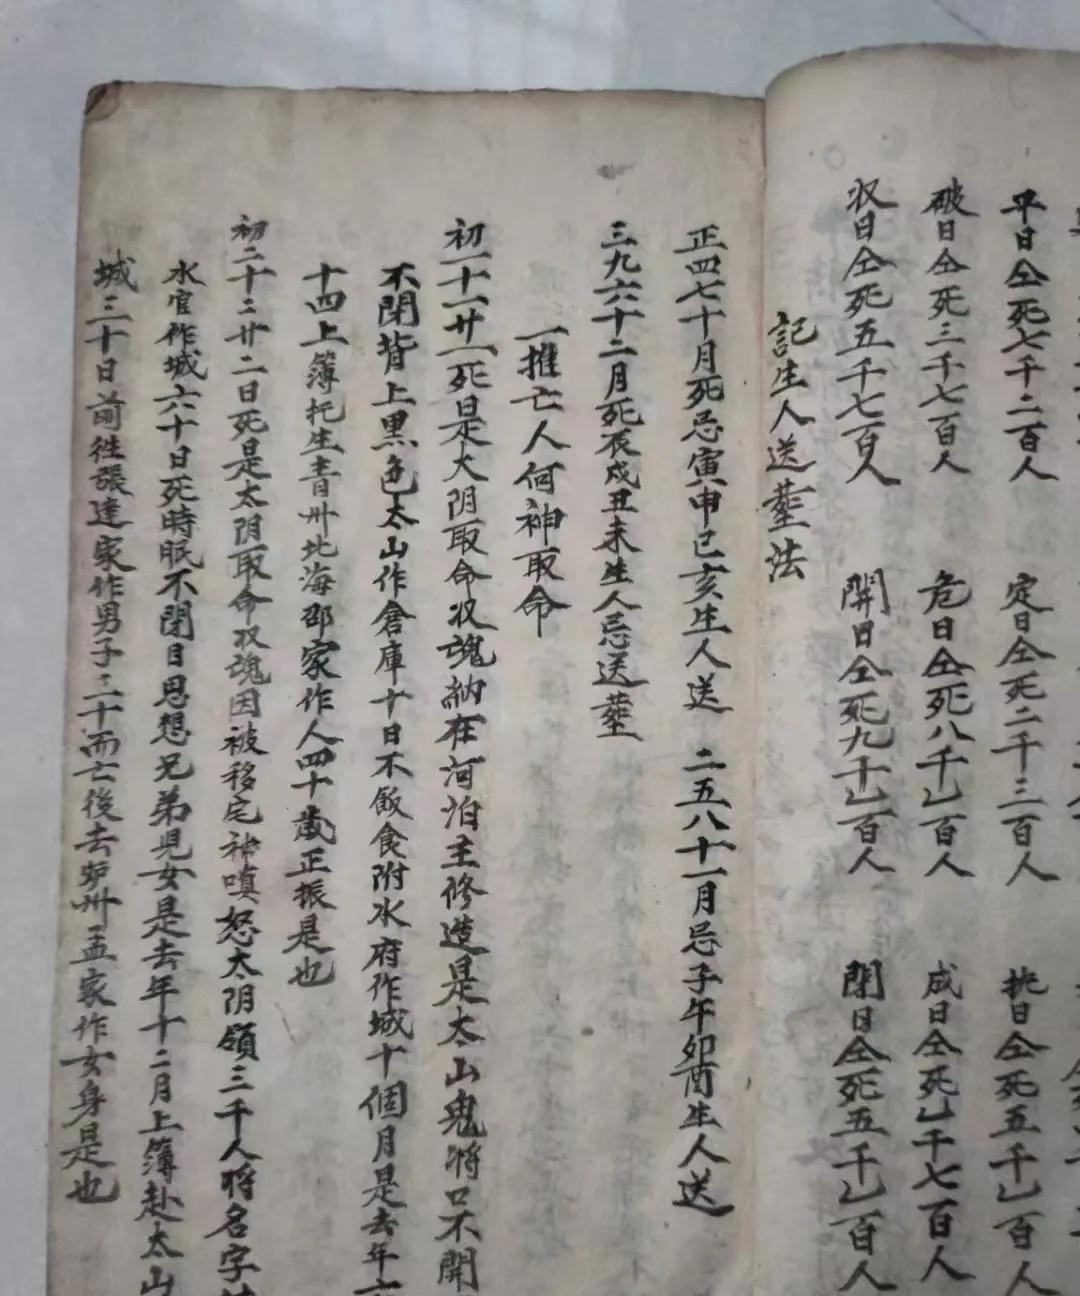 平日仝死七千二百人　定日仝死二千三百人　执日仝死五千乚百人
破日仝死三千七百人　危日仝死八千乚百人　成日仝死乚千七百人
収日仝死五千七百人　開日仝死九十乚百人　閉日仝死五千乚百人
記生人送塟法
正四七十月死忌寅申巳亥生人送　二五八十一月忌子午卯酉生人送
三九六十二月死辰戍丑未生人忌送塟
一推亡人何神取命
初一十一廿一死日是大阴取命収魂納在河泊主修造是太山鬼将口不開
不閉背上黒色太山作倉庫十日不飯食附水府作城十個月是去年六
十四上簿托生青州北海邵家作人四十歲正振是也
初二十二廿二日死是太阴取命収魂因被移宅神嗔怒太阴領三千人將名字
水官作城六十日死時眠不閉目思想兄弟児女是去年十二月上簿赴太山
城三十日前徃張達家作男子三十而亡後去炉州孟家作女身是也